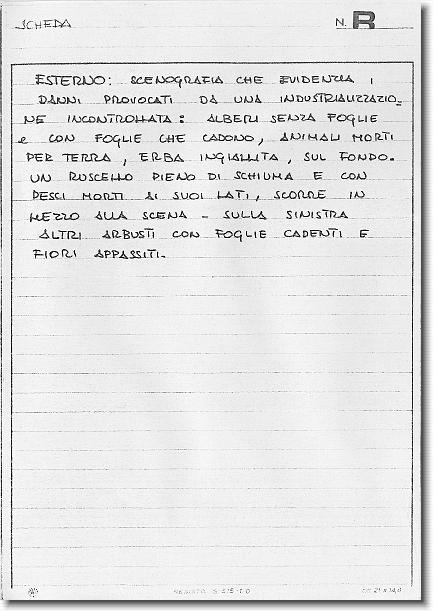 SCHEDA N. B
ESTERNO: SCENOGRAFIA CHE EVIDENZIA I
DANNI PROVOCATI DA UNA INDUSTRIALIZZAZIO-
NE INCONTROLLATA: ALBERI SENZA FOGLIE
e CON FOGLIE CHE CADONO, ANIMALI MORTI
PER TERRA, ERBA INGIALLITA, SUL FONDO.
UN RUSCELLO PIENO DI SCHIUMA E CON
PESCI MORTI AI SUOI LATI, SCORRE IN
MEZZO ALLA SCENA - SULLA SINISTRA
ALTRI ARBUSTI CON FOGLIE CADENTI E
FIORI APPASSITI.